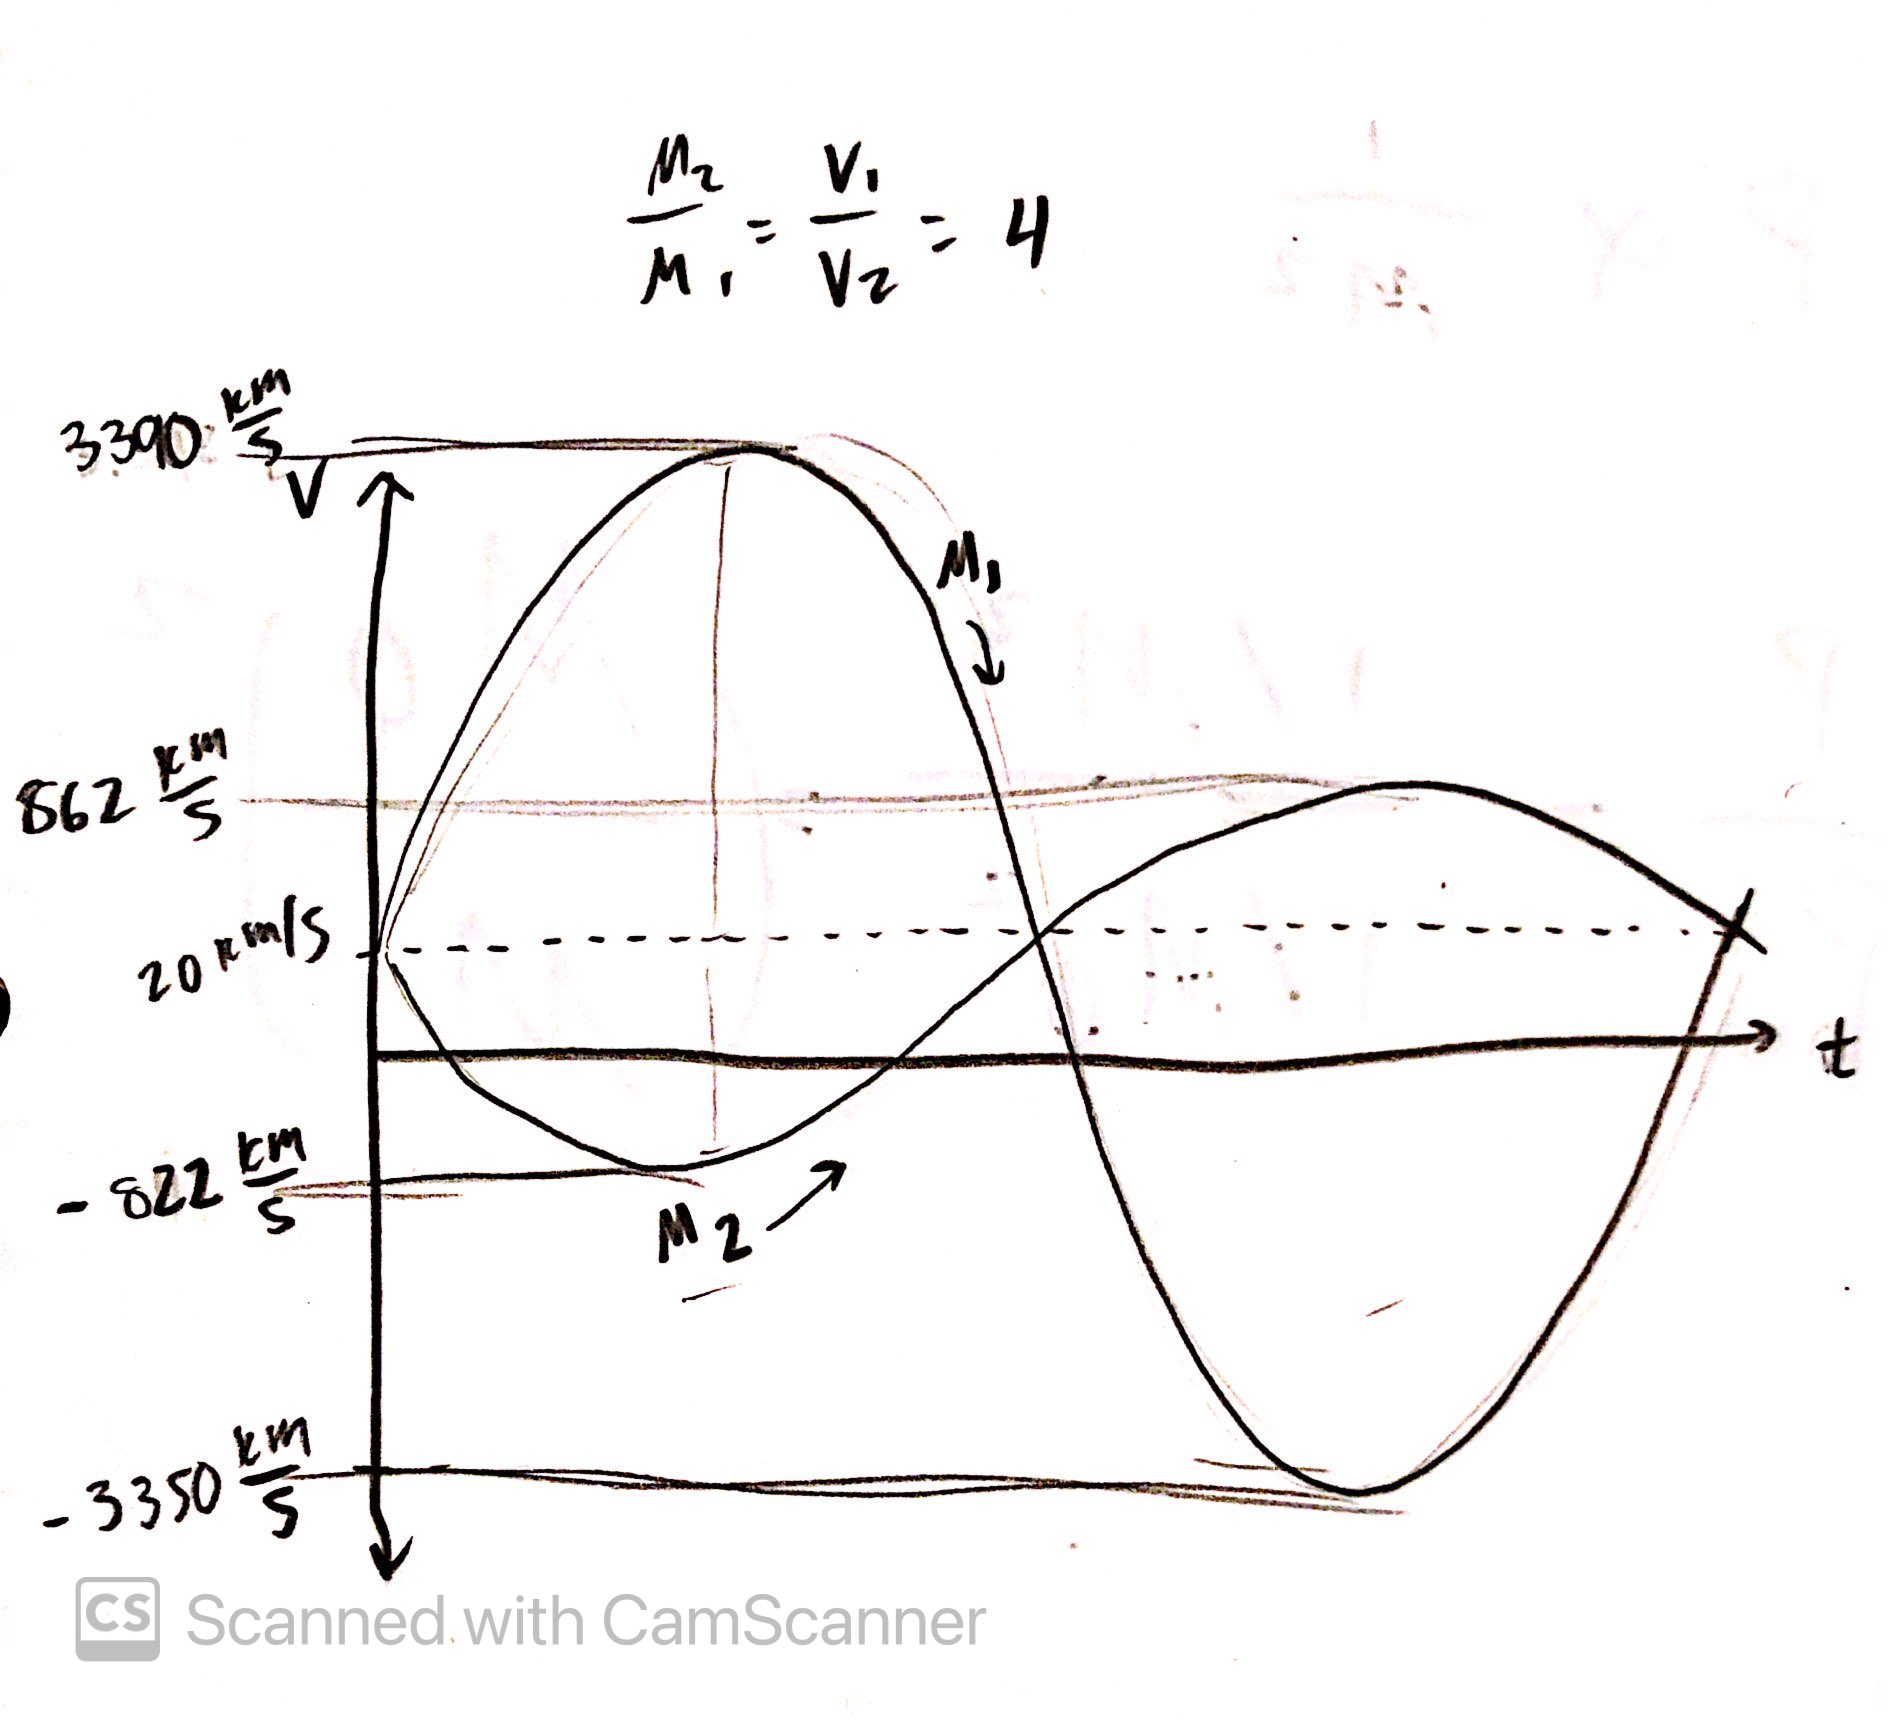 M₂/M₁ = V₁/V₂ = 4
3390 km/s
V
M₁
862 km/s
20 km/s
t
-822 km/s
M₂
-3350 km/s
CS Scanned with CamScanner